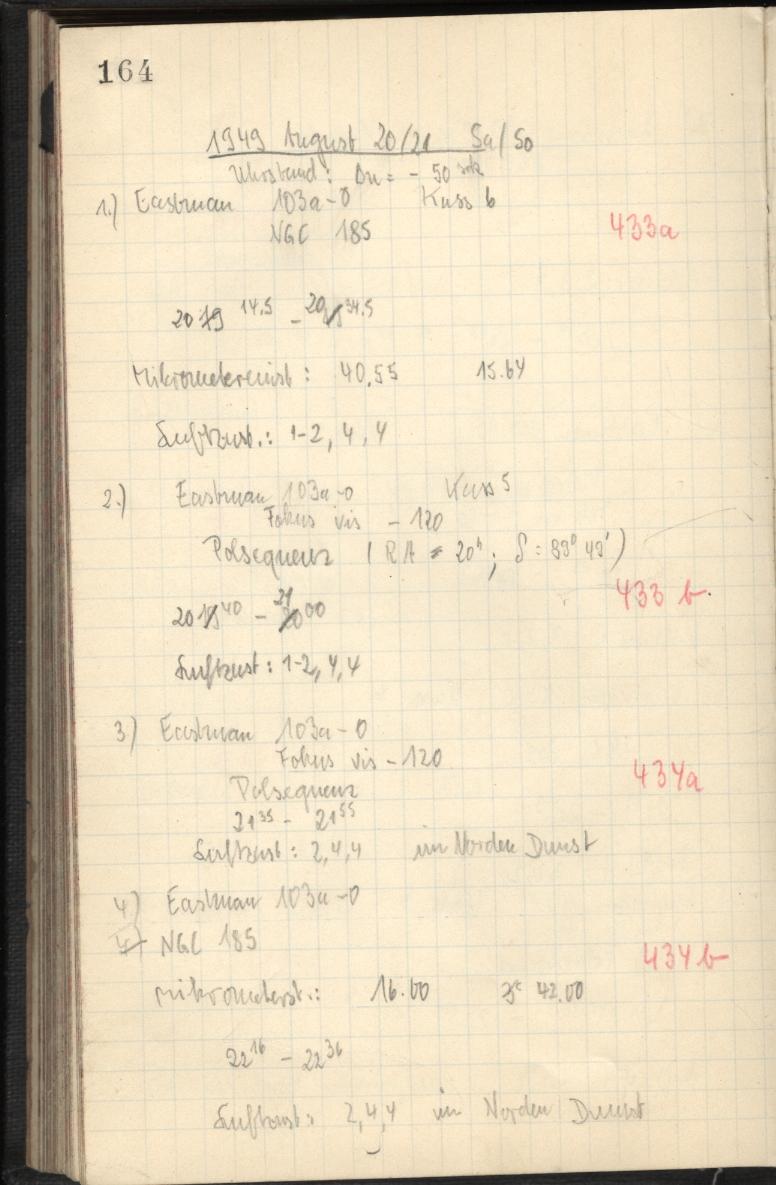 164
1949 August 20/21 Sa/So
Uhrstand: Δu = - 50 sek
1.) Eastman 103a-O Kass 6
NGC 185
433a
20 14.5 - 20 34.5
Mikrometereinst: 40.55 15.64
Luftzust.: 1-2, 4, 4
2.) Eastman 103a-O Kass 5
Fokus vis - 120
Polsequenz ( RA = 20h; δ = 89° 49' )
433 b.
20 40 - 21 00
Luftzust: 1-2, 4, 4
3) Eastman 103a-O
Fokus vis - 120
434a
Polsequenz
21 35 - 21 55
Luftzust: 2, 4, 4 im Norden Dunst
4) Eastman 103a-O
NGC 185
434b
Mikrometerst.: 16.00 42.00
22 16 - 22 36
Luftzust: 2, 4, 4 im Norden Dunst